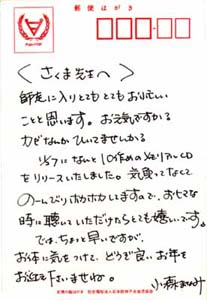 郵便はがき
<さくま先生へ>
師走に入りとてもとてもお忙しい
ことと思います。お元気ですか
カゼなんかひいてませんか
11/7になんと10作めのメモリアルCD
をリリースいたしました。気張ってなくて
のーんびりホカホカしてますので、おヒマな
時に聴いていただけたらとても嬉しいです。
では、ちょっと早いですが、
お体に気をつけて、どうぞ良いお年を
お迎え下さいませね。
小森まなみ